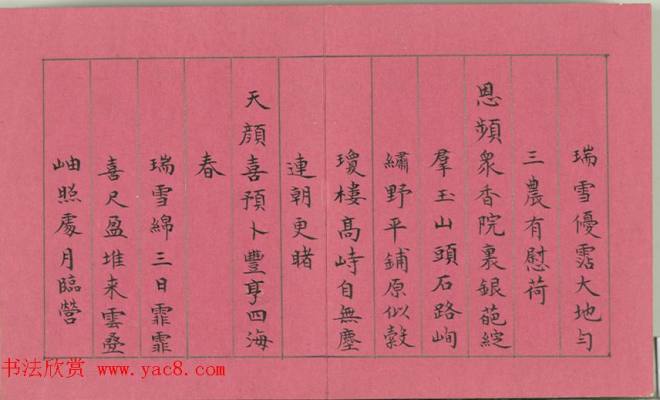 瑞雪優霑大地勻
三農有慰荷
恩頻眾香院裏銀葩綻
羣玉山頭石路峋
繡野平鋪原似縠
瓊樓髙峙自無塵
連朝更睹
天顔喜預卜豐亨四海
春
瑞雪綿三日霏霏
喜尺盈堆来雲疊
岫照處月臨營
书法欣赏 www.yac8.com